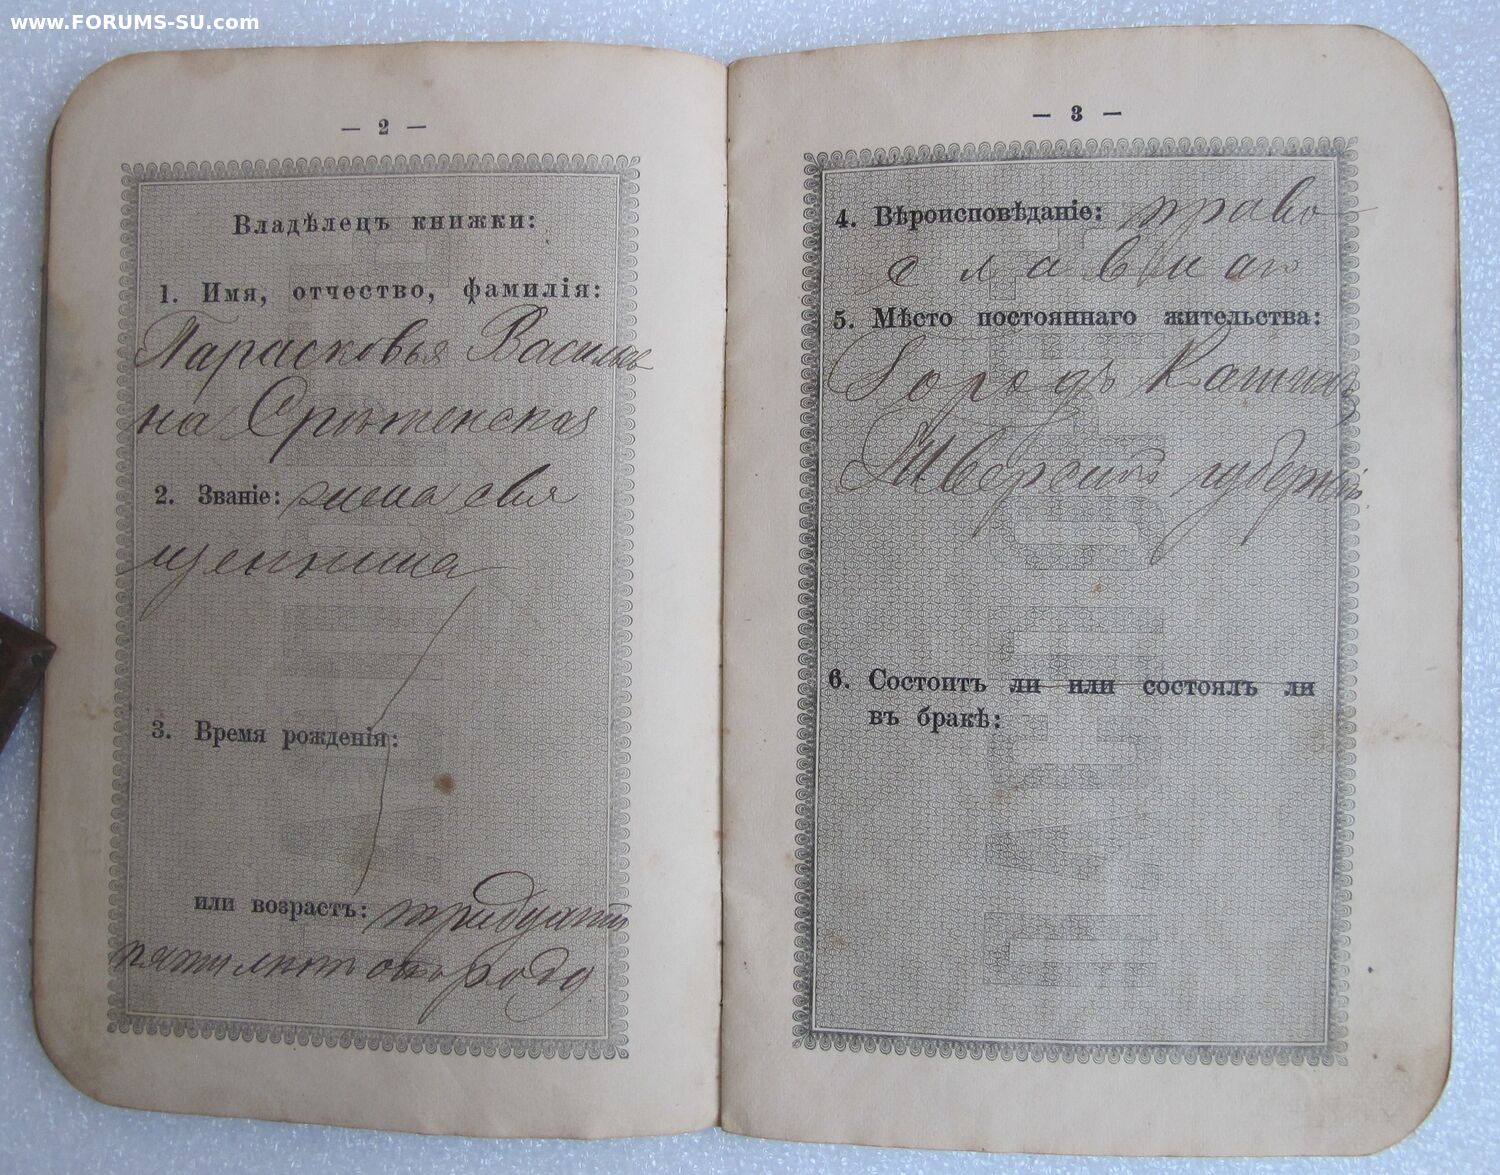 www.FORUMS-SU.com
— 2 —
Владѣлецъ книжки:
1. Имя, отчество, фамилія:
Парасковья Василье
на Срѣтенская
2. Званіе: жена свя
щенника
3. Время рожденія:
или возрастъ: тридцати
пяти лѣтъ отъ роду
— 3 —
4. Вѣроисповѣданіе: право
славная
5. Мѣсто постояннаго жительства:
Городъ Кашинъ
Тверской губерніи
6. Состоитъ ли или состоялъ ли
въ бракѣ: